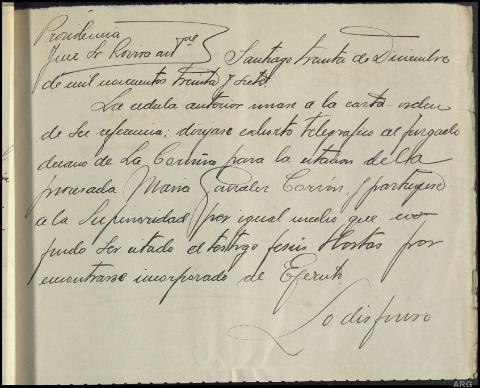 Providencia
Juez Sr. Rovira
Santiago treinta de Diciembre
de mil novecientos treinta y siete
La cedula anterior unase a la carta-orden
de su referencia; dirijase exhorto telegrafico al juzgado
decano de La Coruña para la citacion de la
procesada Maria Gonzalez Carrón, y participese
a la Superioridad por igual medio que no
pudo ser citado el testigo Jesus Hortas por
encontrarse incorporado de Ejercito.
Lo dispuso
ARG